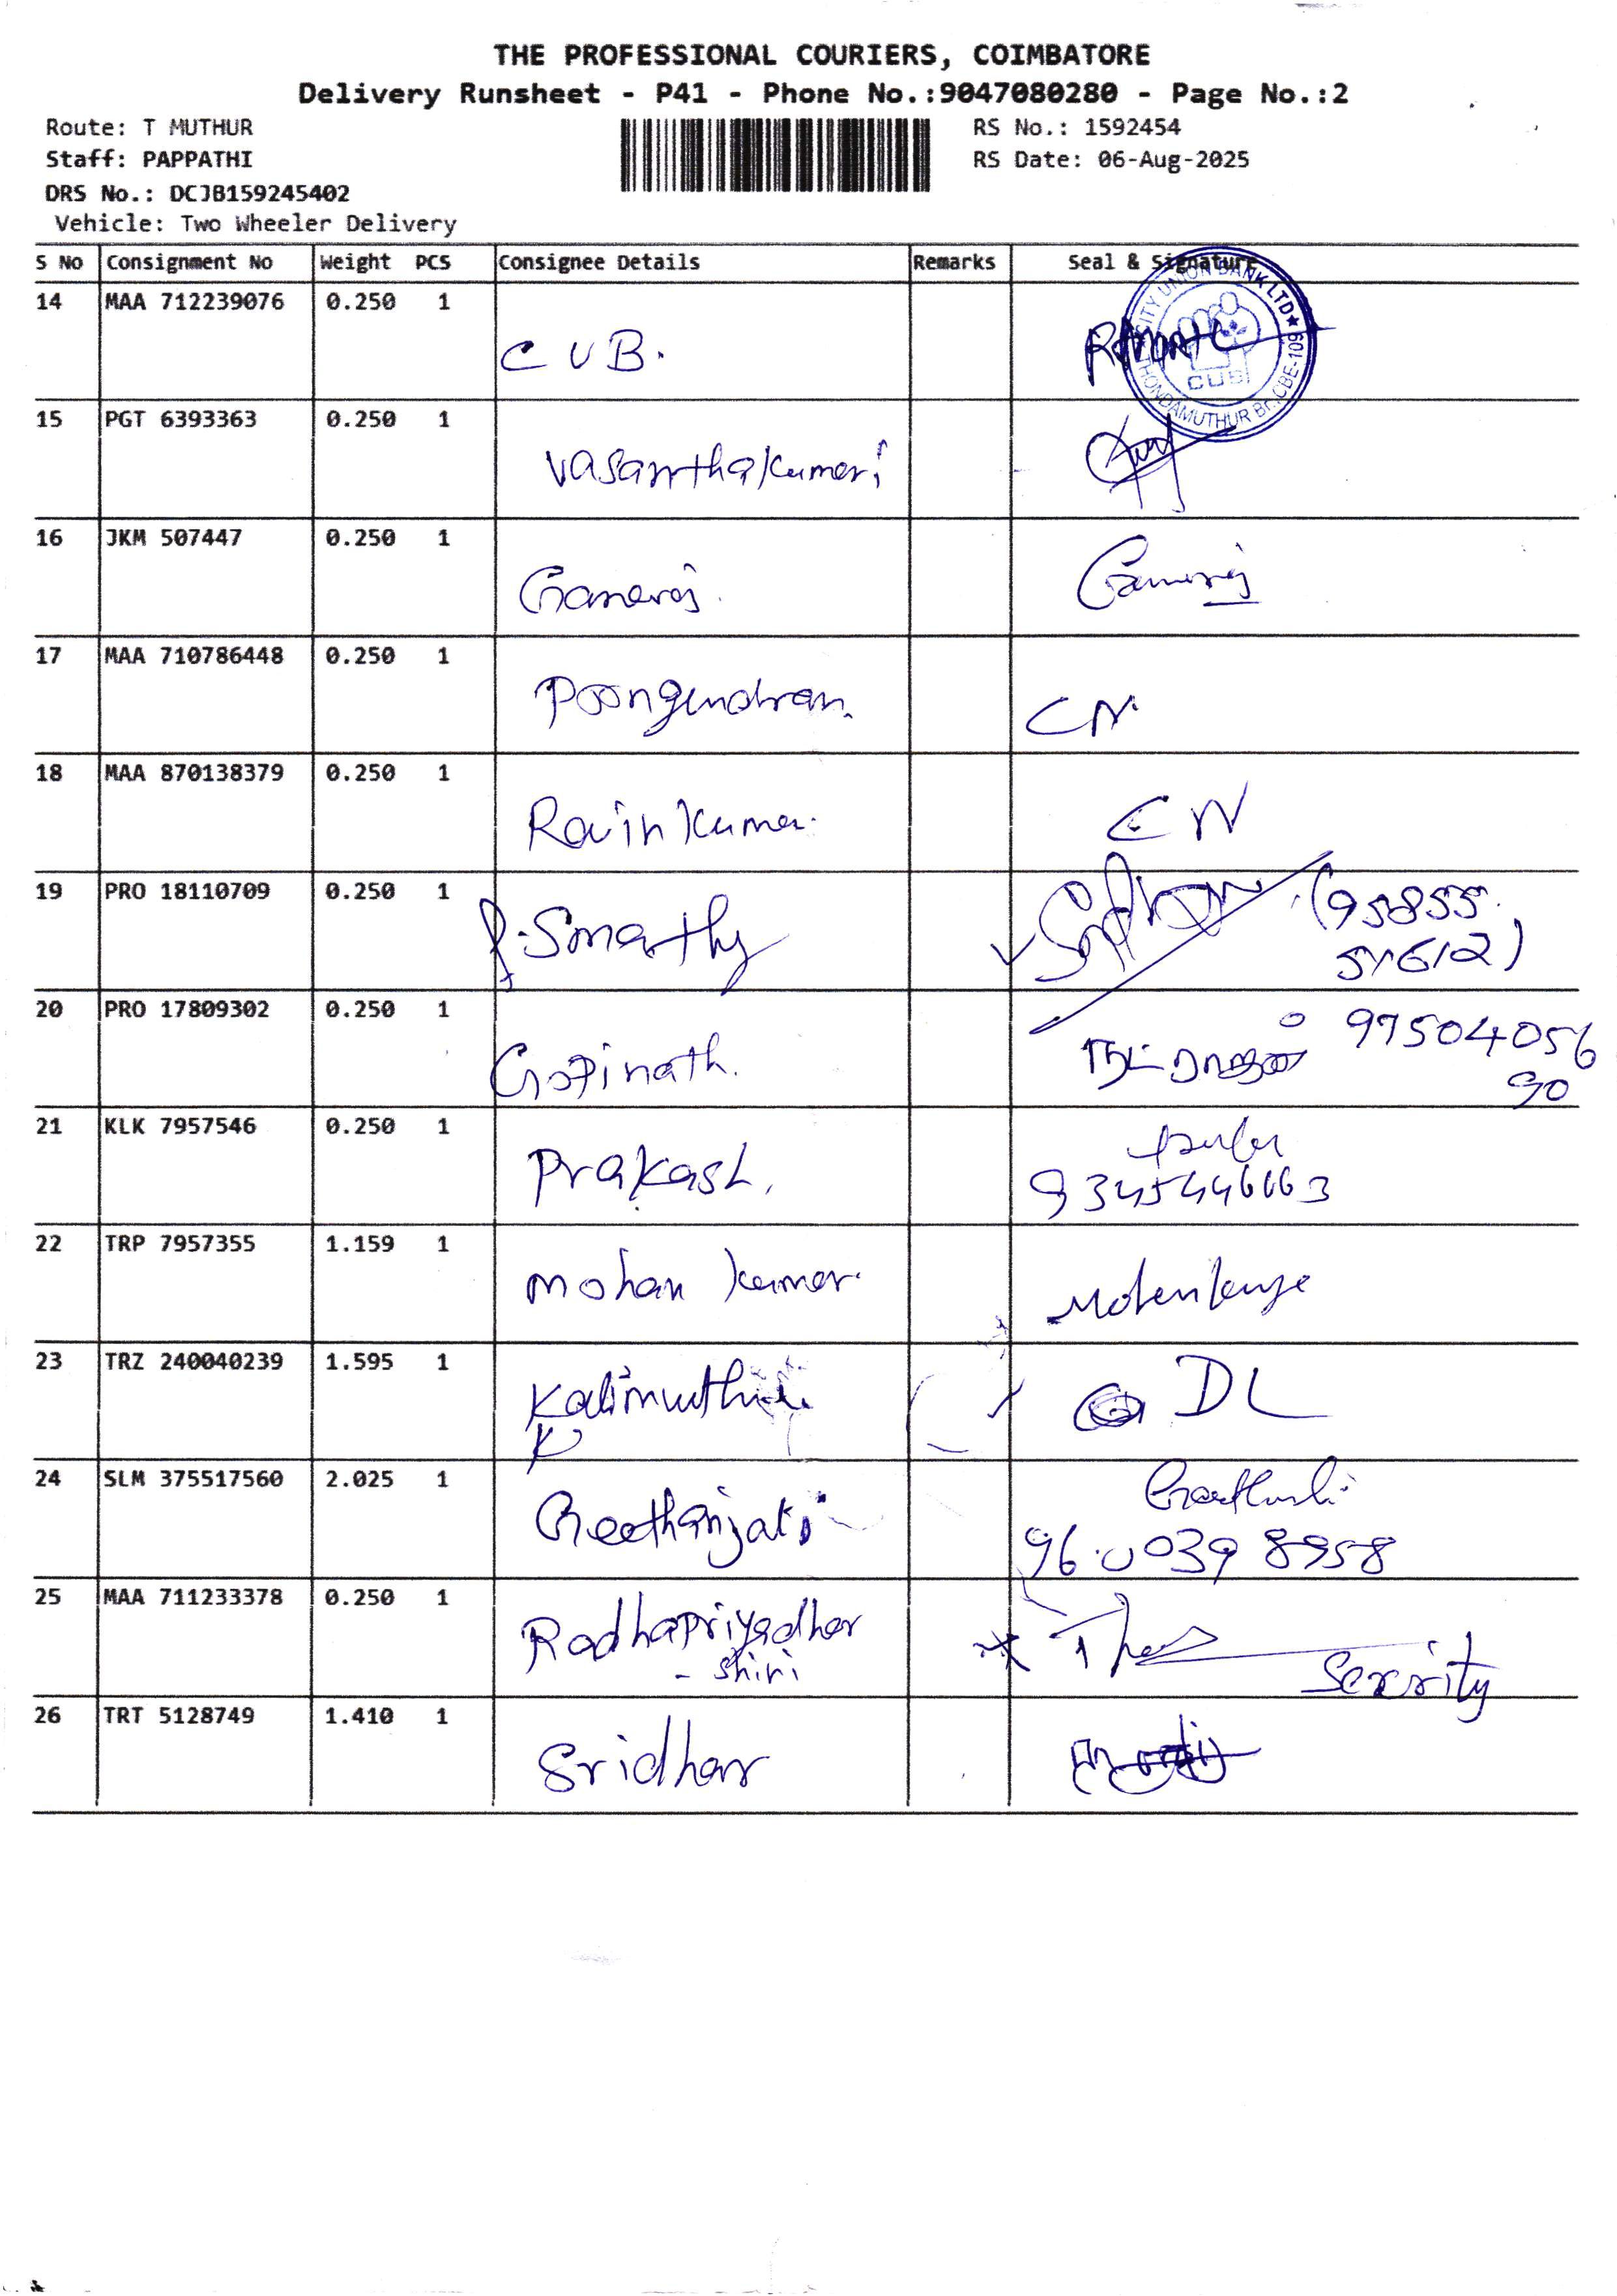 THE PROFESSIONAL COURIERS, COIMBATORE
Delivery Runsheet - P41 - Phone No.:9047080280 - Page No.:2
Route: T MUTHUR
RS No.: 1592454
Staff: PAPPATHI
RS Date: 06-Aug-2025
DRS No.: DCJB159245402
Vehicle: Two Wheeler Delivery
S No Consignment No Weight PCS Consignee Details Remarks Seal & Signature
CITY UNION BANK LTD ★ THONDAMUTHUR Br., CBE-109
CUB
14 MAA 712239076 0.250 1
C U B.
15 PGT 6393363 0.250 1
Vasanthakumari
16 JKM 507447 0.250 1
Ganeraj.
17 MAA 710786448 0.250 1
Poongundran. CN
18 MAA 870138379 0.250 1
Ravin Kumar. CN
19 PRO 18110709 0.250 1
P. Smarthy (95855
20 PRO 17809302 0.250 1
Gopinath. நடராஜன் 97504056
90
21 KLK 7957546 0.250 1
Prakash.
22 TRP 7957355 1.159 1
Mohan Kumar.
23 TRZ 240040239 1.595 1
Kalimuthu DL
24 SLM 375517560 2.025 1
Geethanjali
9600398958
25 MAA 711233378 0.250 1
Radhapriyadhar
- shini
Sexrity
26 TRT 5128749 1.410 1
Sridhar